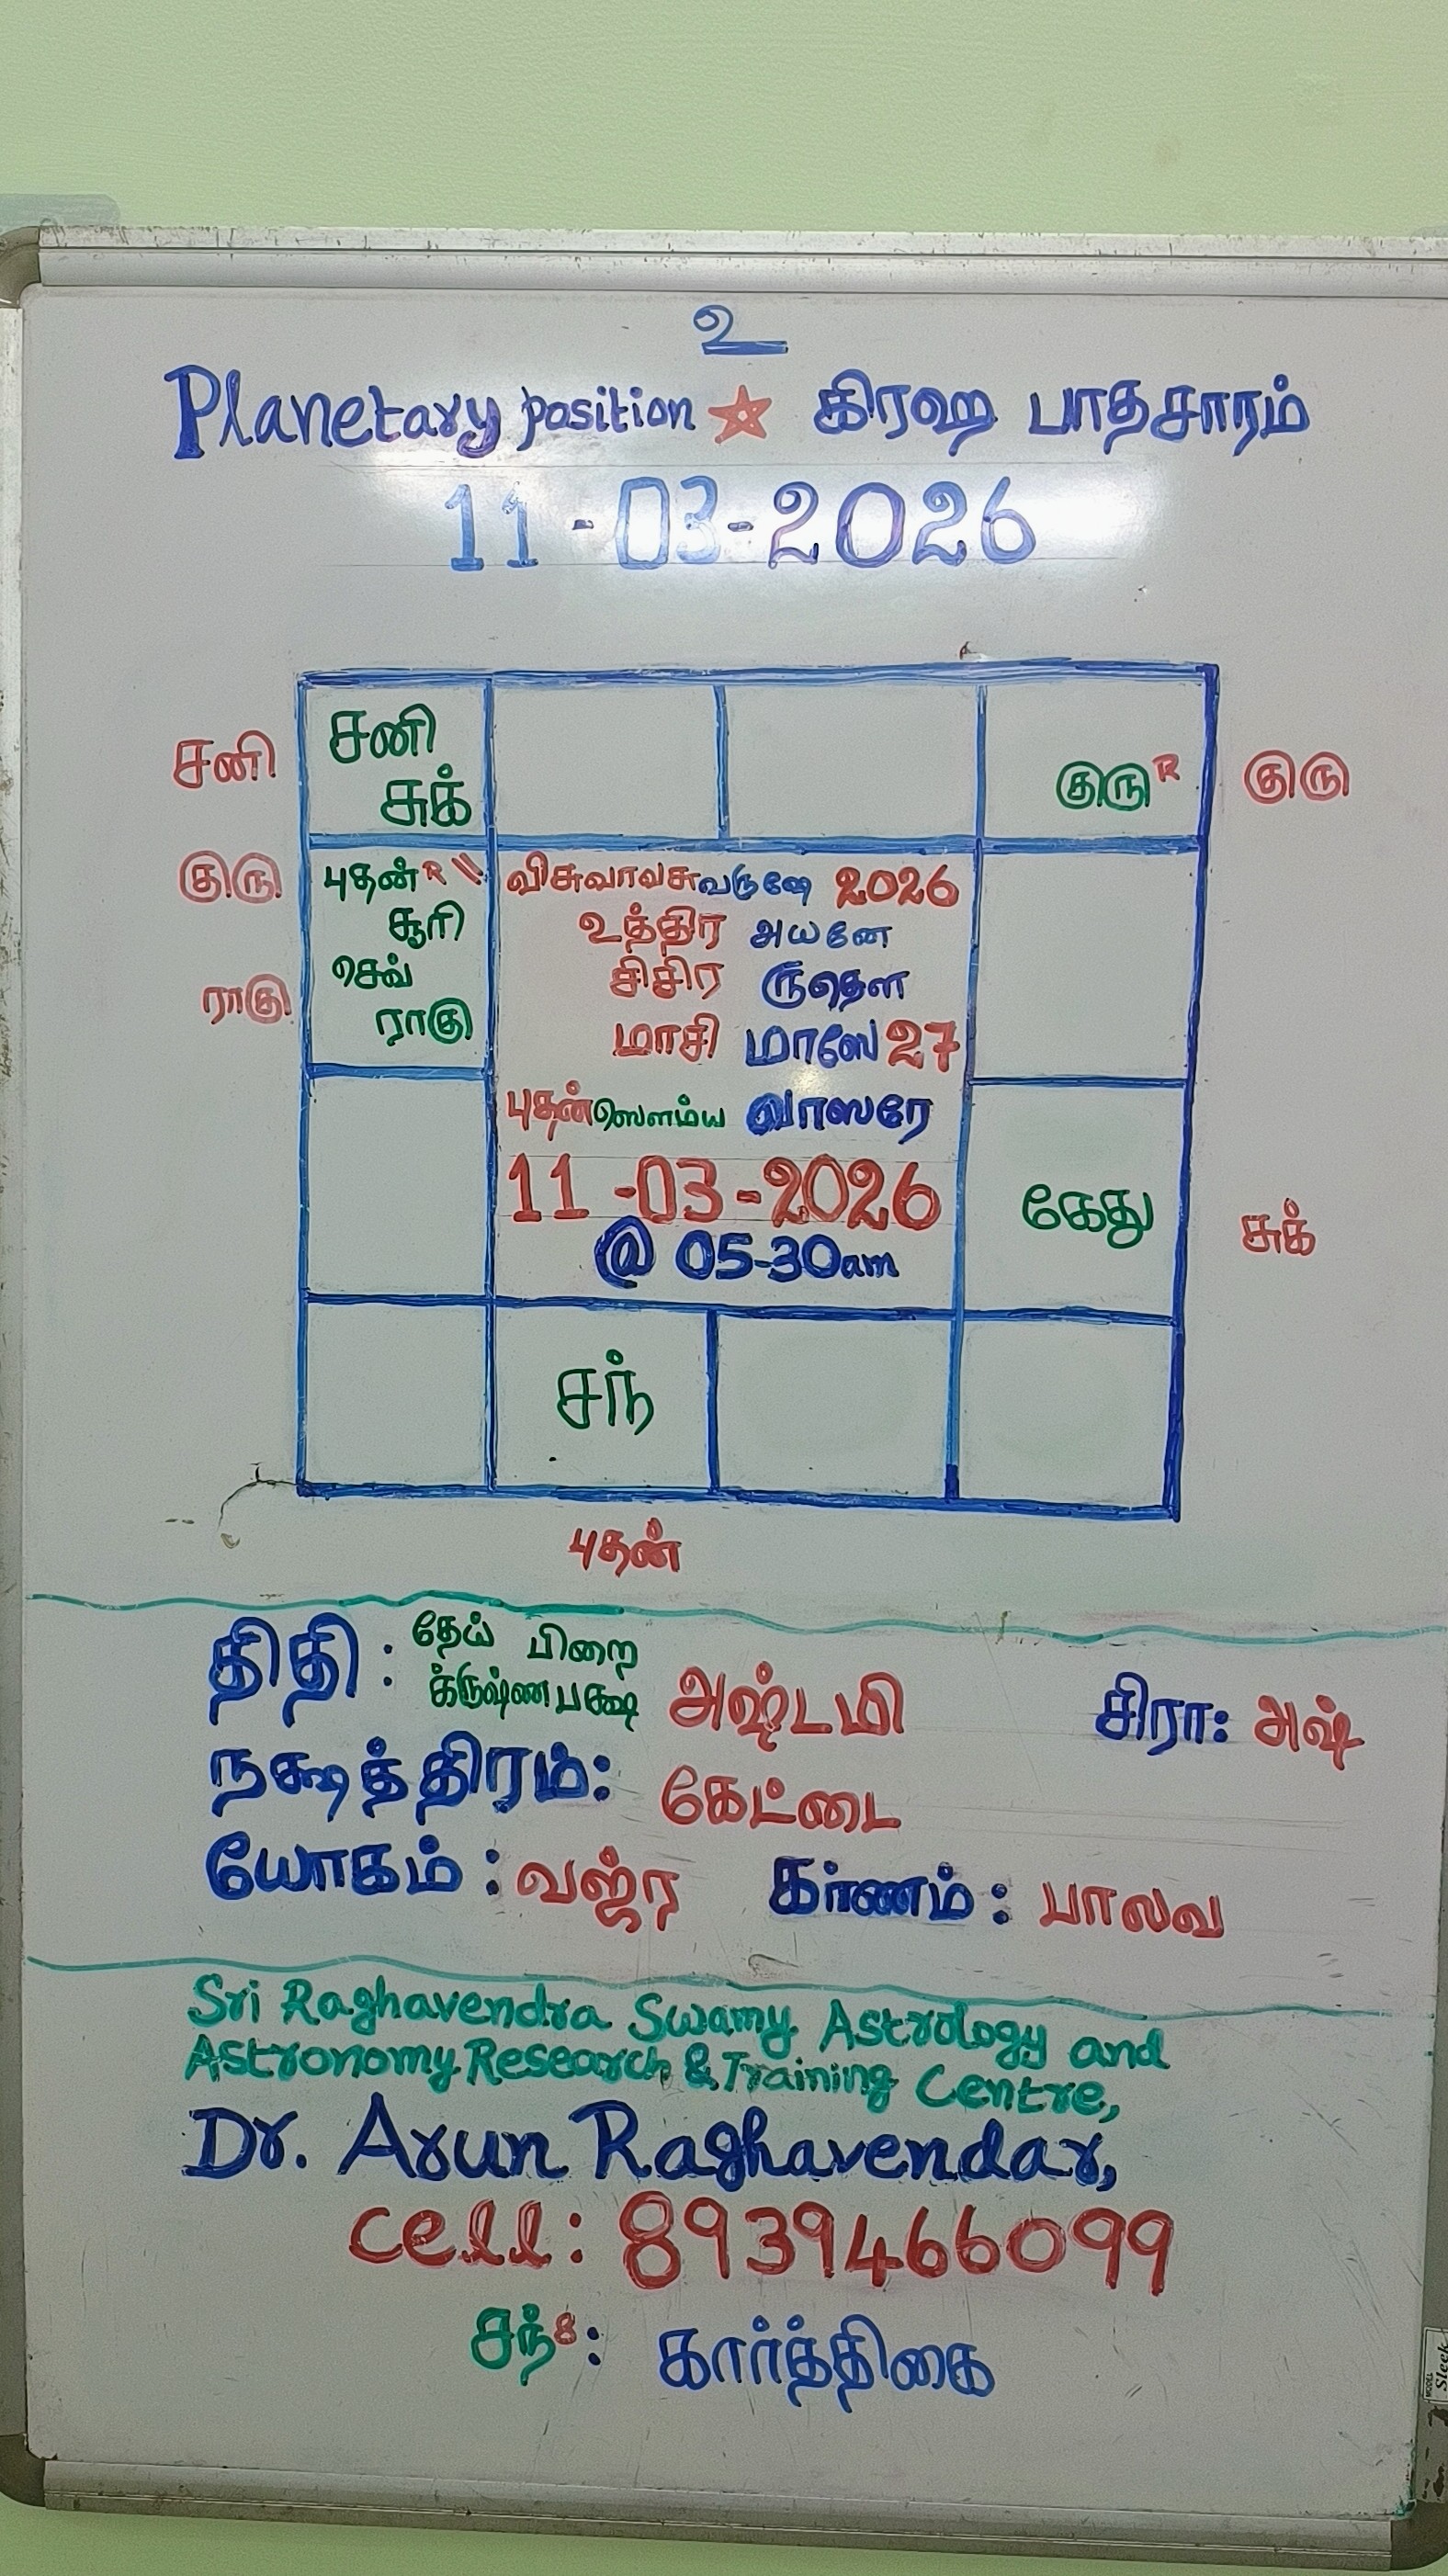 உ
Planetary position ☆ கிரஹ பாதசாரம்
11-03-2026
சனி
சனி
சுக்
குரு R
குரு
குரு
புதன் R \\
சூரி
செவ்
ராகு
ராகு
விசுவாவசு வருஷே 2026
உத்திர அயனே
சிசிர ருதௌ
மாசி மாஸே 27
புதன் ஸௌம்ய வாஸரே
11-03-2026
@ 05-30am
கேது
சுக்
சந்
புதன்
திதி : தேய் பிறை
க்ருஷ்ண பக்ஷ அஷ்டமி சிரா: அஷ்
நக்ஷத்திரம்: கேட்டை
யோகம் : வஜ்ர கர்ணம் : பாலவ
Sri Raghavendra Swamy Astrology and
Astronomy Research & Training Centre,
Dr. Arun Raghavendar,
cell: 8939466099
சந்8: கார்த்திகை